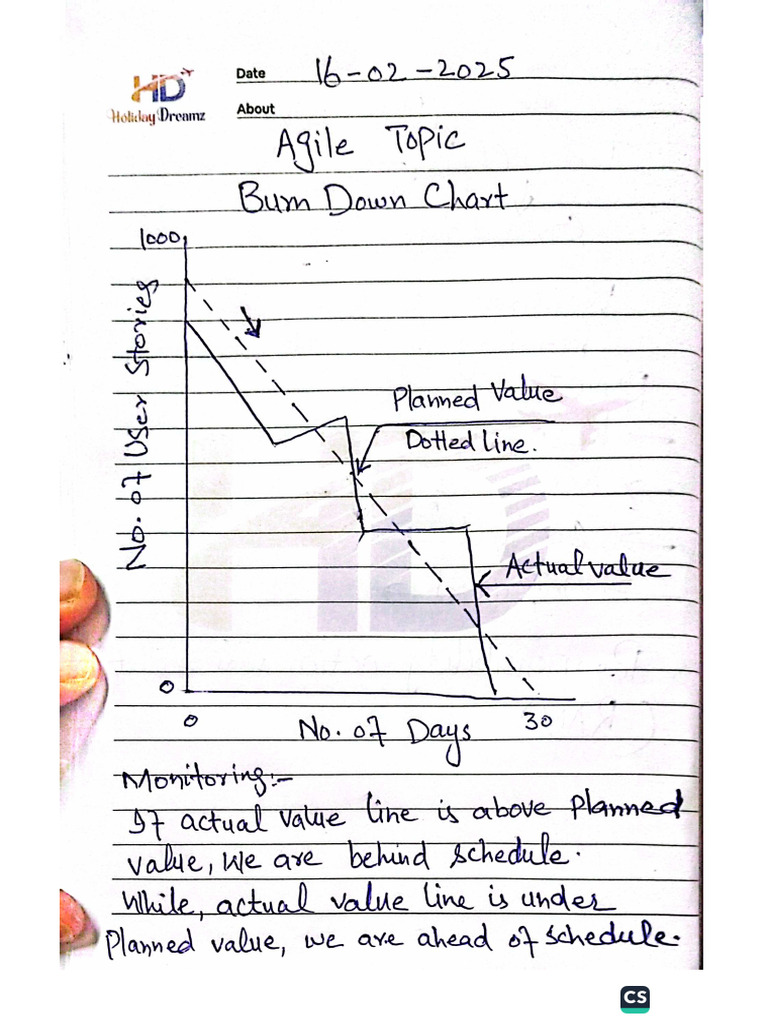 HD
Holiday Dreamz
Date 16-02-2025
About
Agile Topic
Burn Down Chart
1000
No. of User Stories
Planned Value
Dotted line.
Actual value
0
0 No. of Days 30
Monitoring:-
If actual value line is above planned
value, we are behind schedule.
While, actual value line is under
Planned value, we are ahead of schedule.
CS